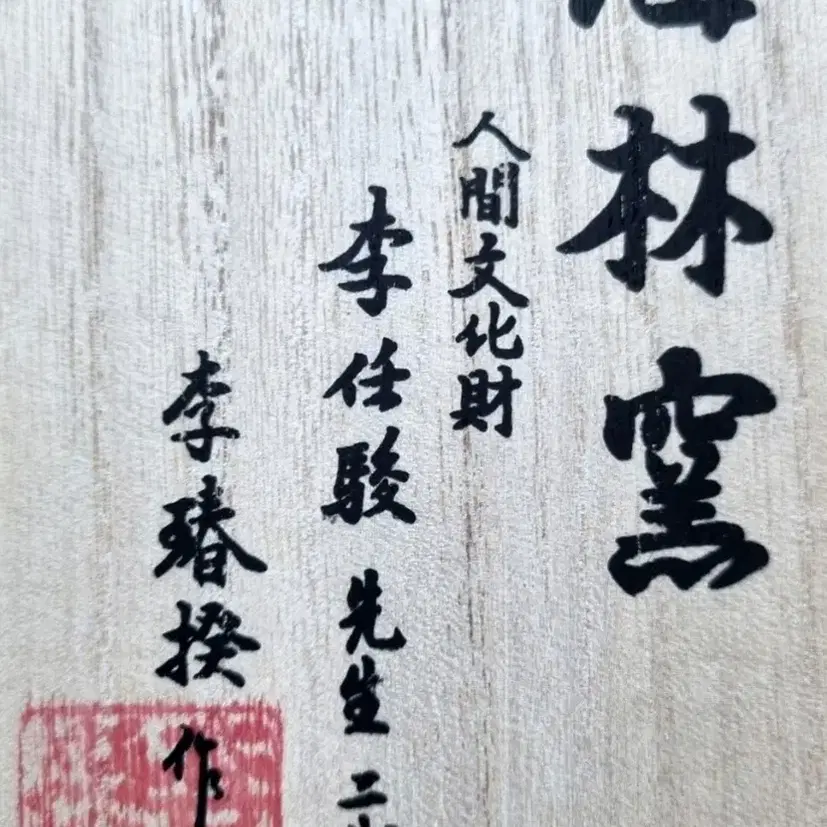 林窯
人間文化財
李任駿 先生 二
李瑃揆 作